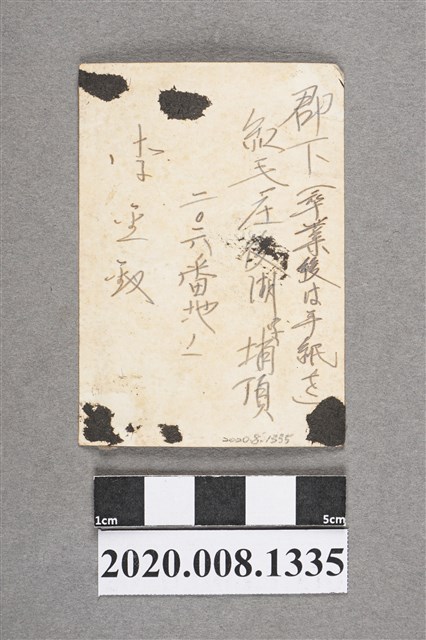 郡下(卒業後は手紙を
紅毛庄後湖字埔頂
二〇六番地ノ一
李
2020.8.1335
1cm
5cm
2020.008.1335